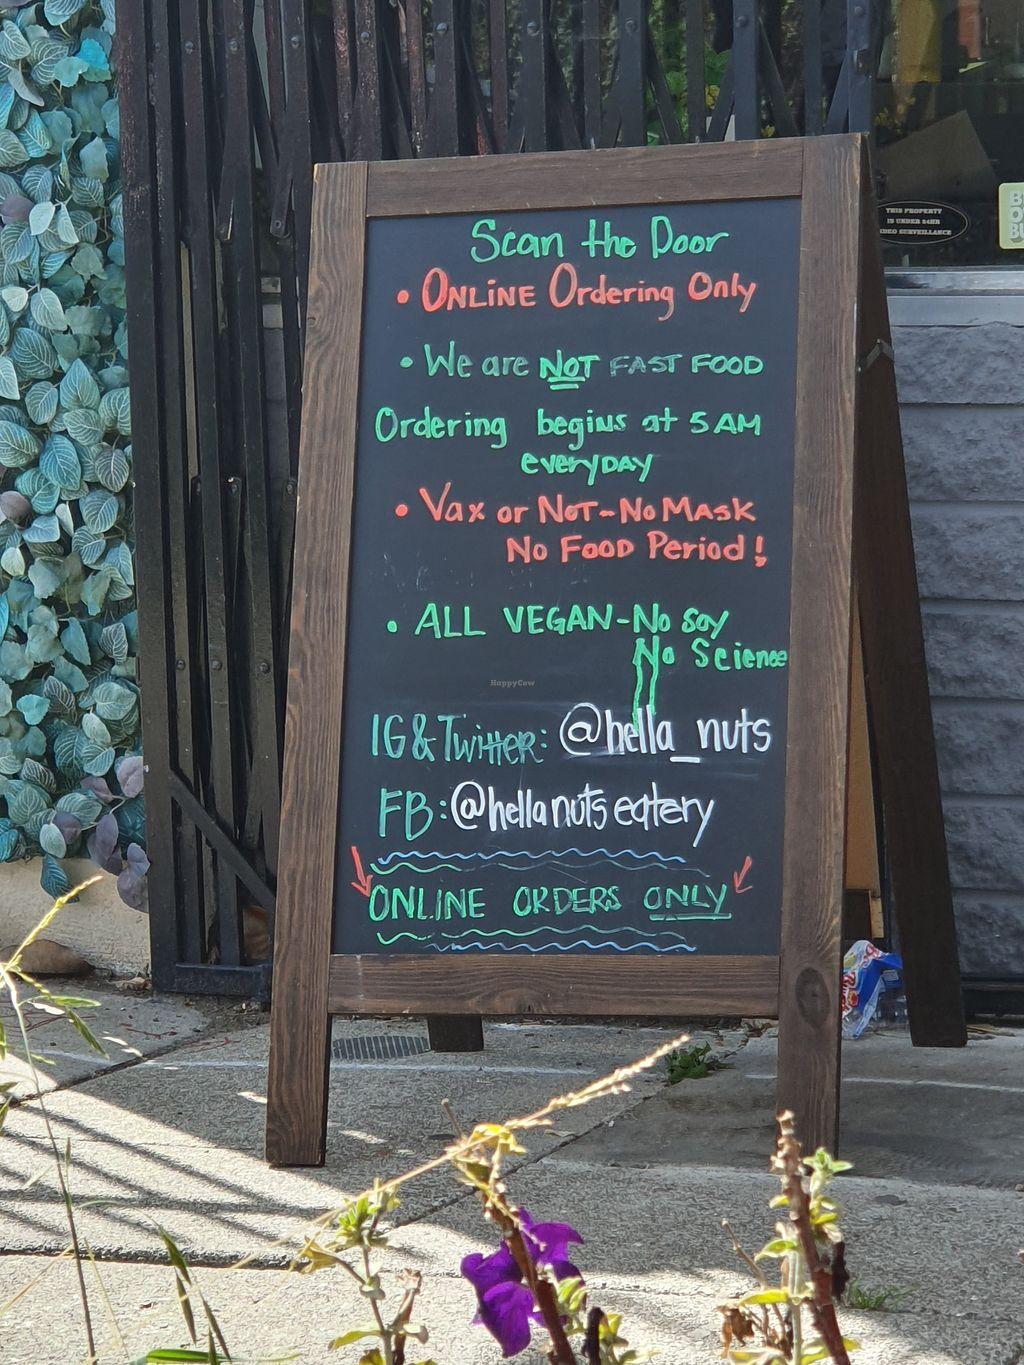 Scan the Door
• ONLINE Ordering Only
• We are NOT FAST FOOD
Ordering begins at 5 AM
everyDAY
• Vax or NOT - No MASK
No FOOD Period!
• ALL VEGAN - No Soy
No Science
IG & Twitter: @hella_nuts
FB: @hellanutseatery
ONLINE ORDERS ONLY
THIS PROPERTY
IS UNDER 24HR
VIDEO SURVEILLANCE
HappyCow